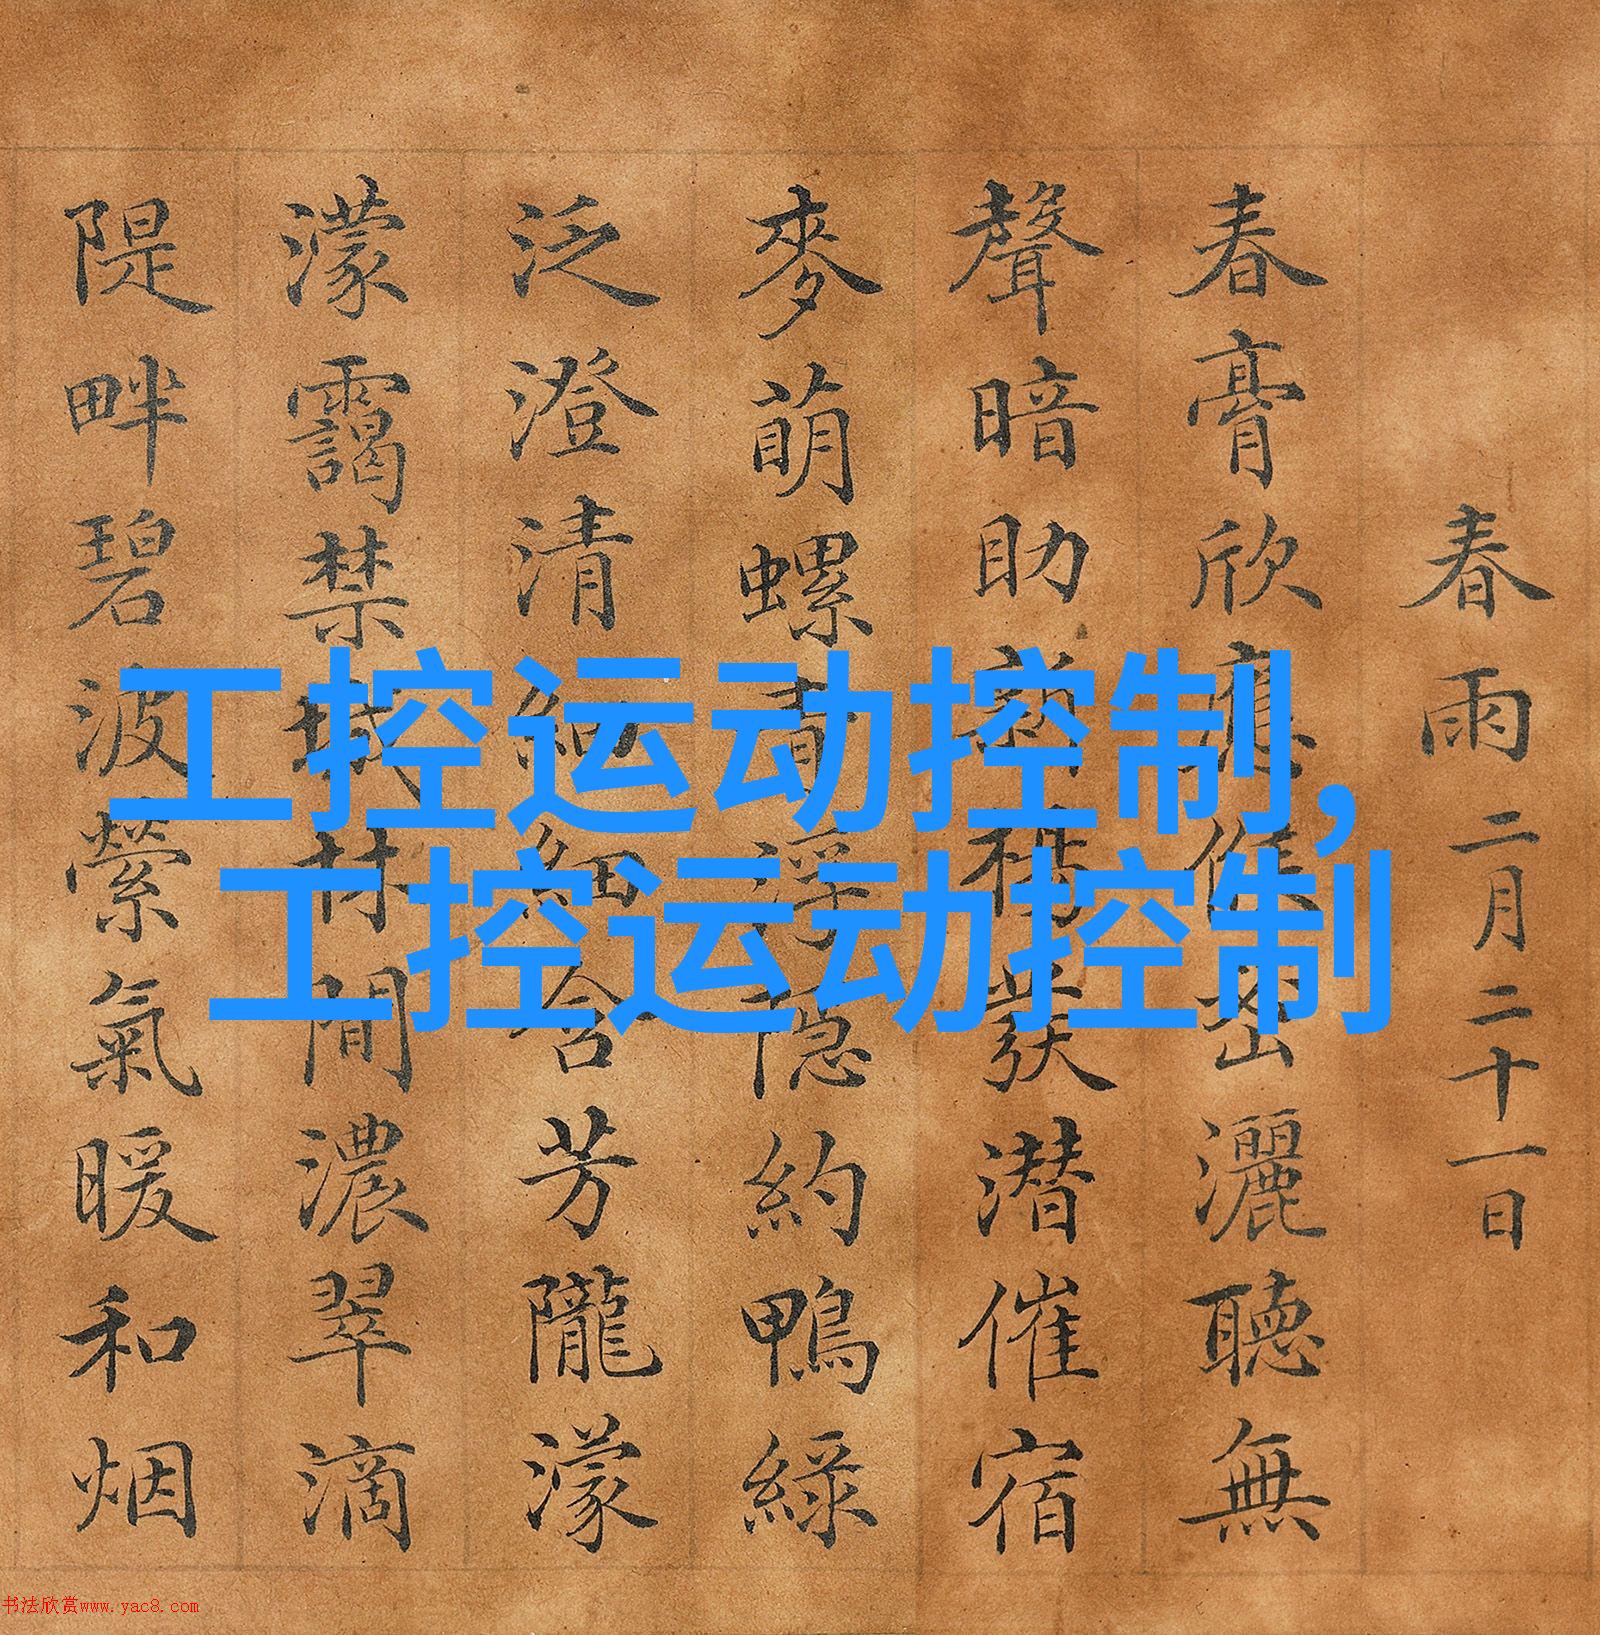 春雨 二月二十一日
春膏欣應候密灑聽無
聲暗助新楊發潜催宿
麥萌螺青浮隐約鴨綠
泛澄清細細含芳隴濛
濛靄禁城林間濃翠滴
隄畔碧波縈氣暖和烟
工控运动控制,
工控运动控制
书法欣赏www.yac8.com